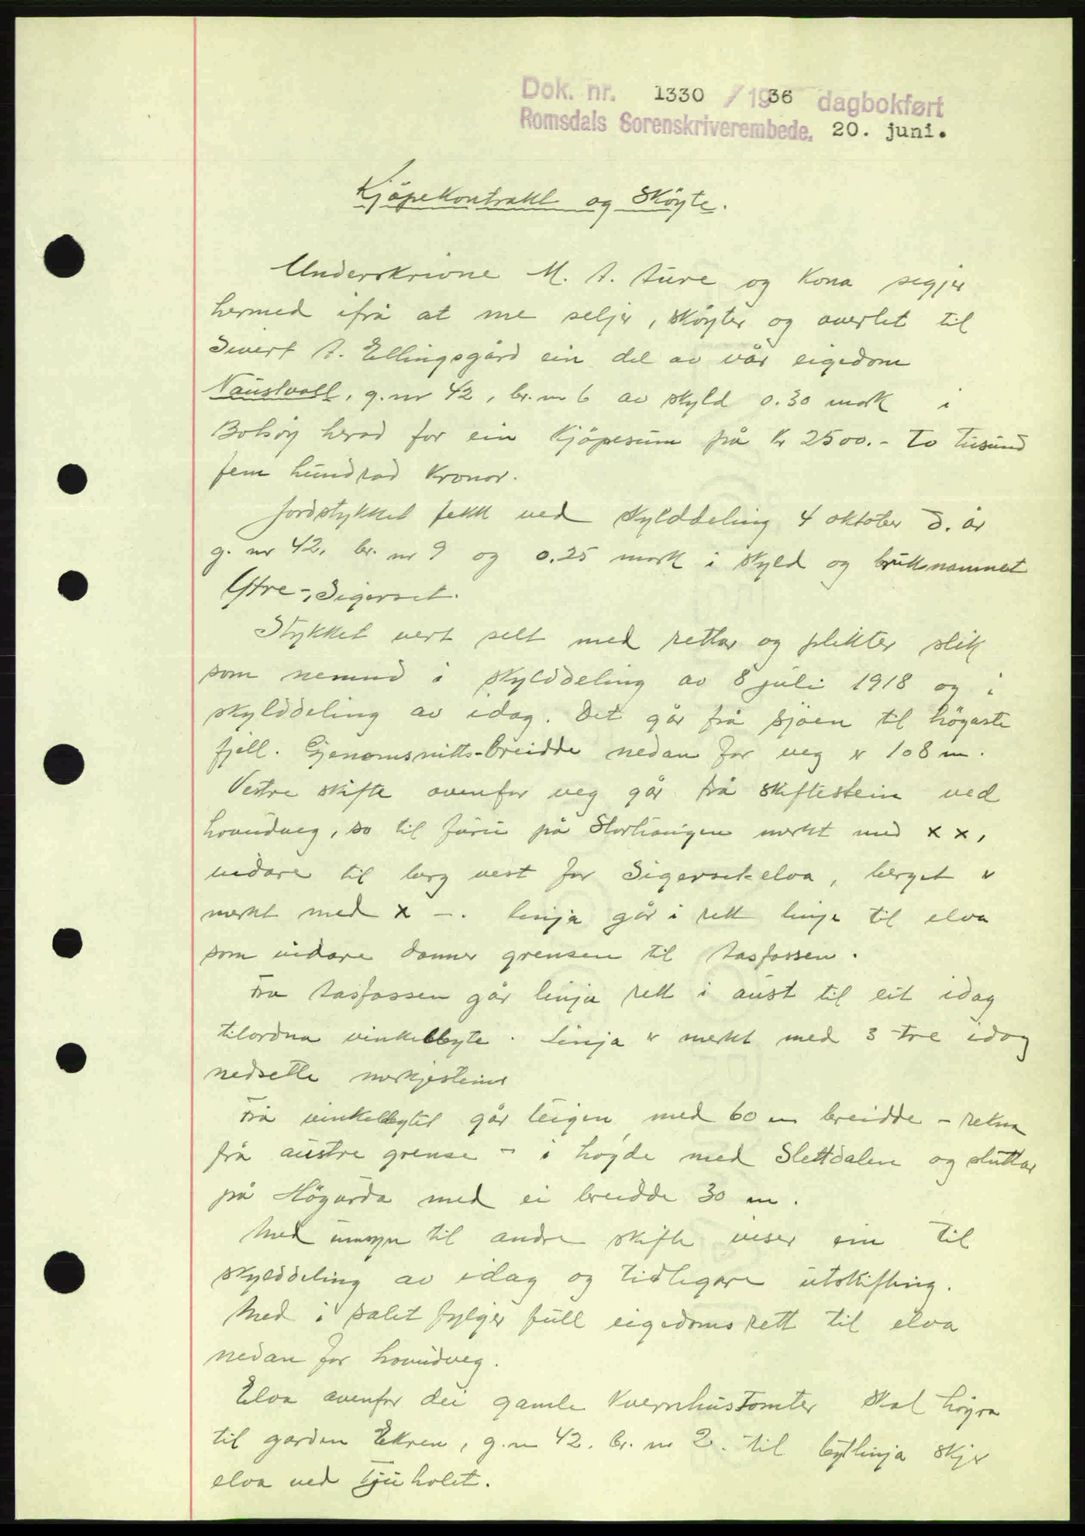 Dok. nr. 1330 / 1936 dagbokført
Romsdals Sorenskriverembede. 20. juni.
Kjöpekontrakt og Sköyte.
Underskrivne M. A. Aure og Kona segjer
hermed ifrå at me seljer, sköyter og overlet til
Sivert A. Ellingsgård ein del av vår eigedom
Naustvoll, g. nr 42, br. nr 6 av skyld 0.30 mark i
Bolsöy herad for ein Kjöpesum på kr 2500.- To tusund
fem hundrad Kronor.
Jordstykket fekk ved skylddeling 4 oktober d. år
g. nr 42, br. nr 9 og 0.25 mark i skyld og bruksnamnet
Ytre-Sigerset.
Stykket vert selt med rettar og plikter slik
som nemnd i skylddeling av 8 juli 1918 og i
skylddeling av idag. Det går frå sjöen til högaste
fjell. Gjenomsnitts-breidde nedan for veg er 108 m.
Vestre skifte ovenfor veg går frå skiftestein ved
hovudveg, so til furu på Storhaugen merkt med x x,
vidare til berg vest for Sigersetelva, berget er
merkt med x -. Linja går i rett linje til elva
som vidare danner grensen til Aasfossen.
Fra Aasfossen går linja rett i aust til eit idag
tilordna vinkelbyte. Linja er merkt med 3 tre idag
nedsette merkjesteiner
Frå vinkelbytet går teigen med 60 m breidde - rekna
frå austre grense - i høyde med Slettdalen og sluttar
på Högurda med ei breidde 30 m.
Med umsyn til andre skifte viser ein til
skylddeling av idag og tidligare utskifting.
Med i salet fylgjer full eigedomsrett til elva
nedan for hovudveg.
Elva ovenfor dei gamle Kvernhustomter skal höyra
til garden Ekren, g. nr 42. br. nr 2. til bytlinja skjer
elva ved Tjuholet.